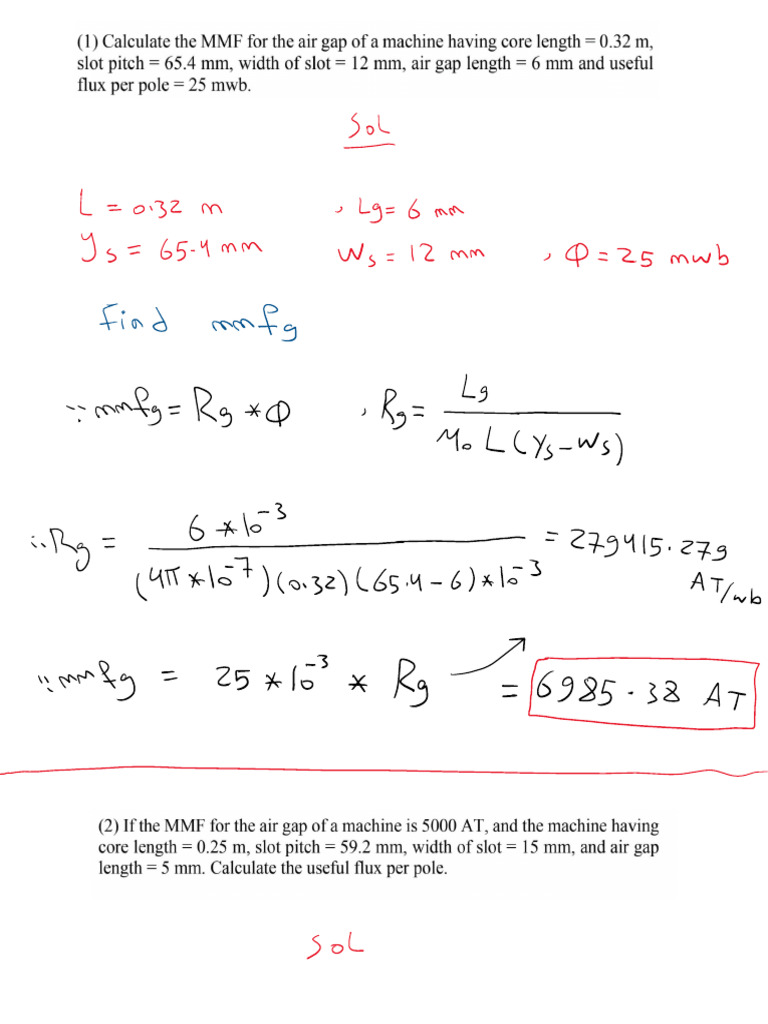 (1) Calculate the MMF for the air gap of a machine having core length = 0.32 m,
slot pitch = 65.4 mm, width of slot = 12 mm, air gap length = 6 mm and useful
flux per pole = 25 mwb.
SoL
L = 0.32 m , Lg = 6 mm
ys = 65.4 mm Ws = 12 mm , Φ = 25 mwb
Find mmfg
∵ mmfg = Rg * Φ , Rg = Lg / (M₀ L (ys - Ws))
∴ Rg = 6 * 10⁻³ / ((4π * 10⁻⁷)(0.32)(65.4 - 6) * 10⁻³) = 279415.279 AT/wb
∵ mmfg = 25 * 10⁻³ * Rg = 6985.38 AT
(2) If the MMF for the air gap of a machine is 5000 AT, and the machine having
core length = 0.25 m, slot pitch = 59.2 mm, width of slot = 15 mm, and air gap
length = 5 mm. Calculate the useful flux per pole.
SoL